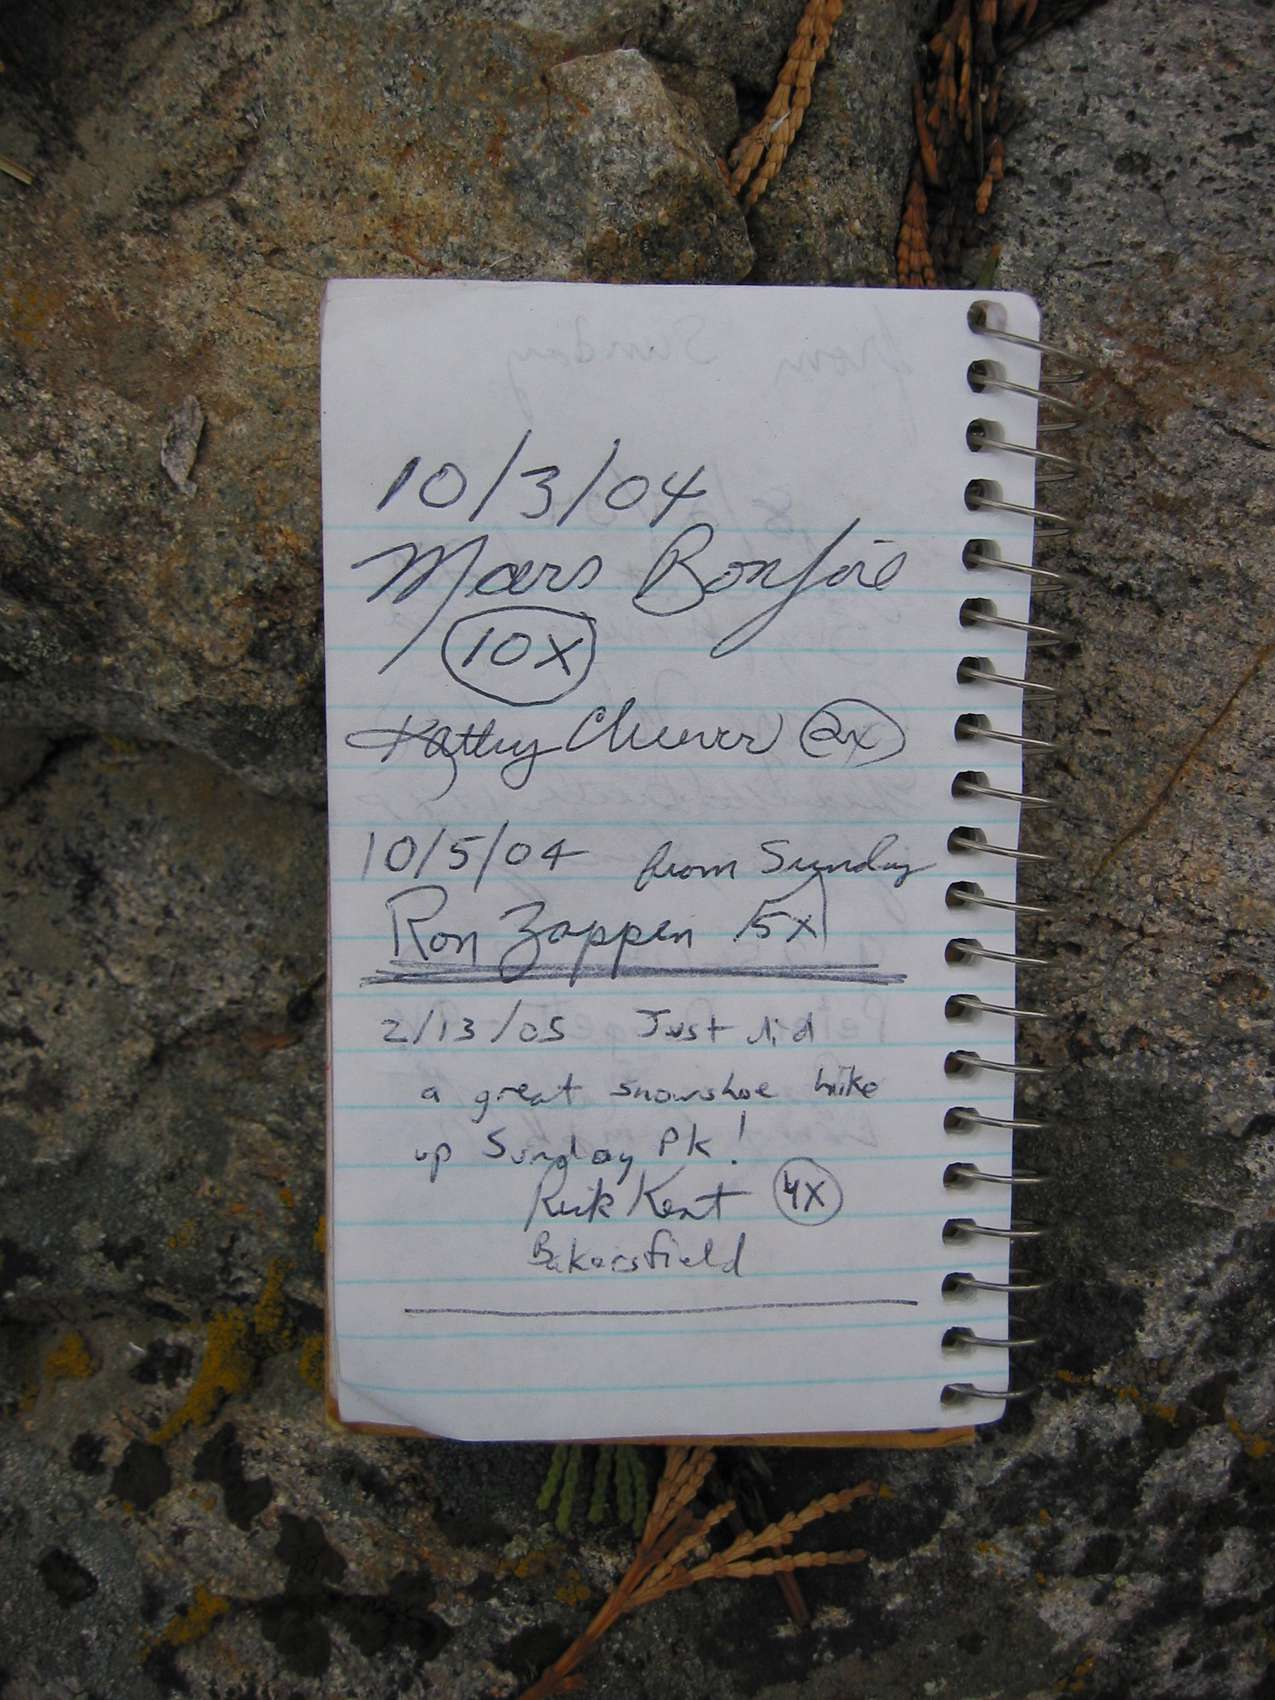 10/3/04
Mars Bonfire
10X
Kathy Cheever 2x
10/5/04 from Sunday
Ron Zappen 5x
2/13/05 Just did
a great snowshoe hike
up Sunday Pk!
Rick Kent 4X
Bakersfield